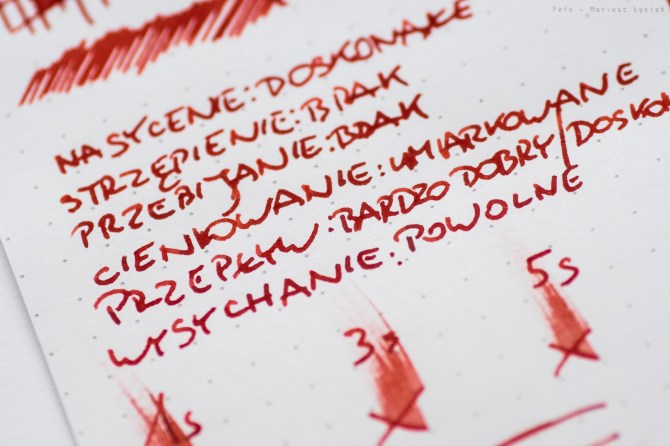 Foto - Mariusz Łysień
NASYCENIE: DOSKONAŁE
STRZĘPIENIE: BRAK
PRZEBIJANIE: BRAK
CIENIOWANIE: UMIARKOWANE
PRZEPŁYW: BARDZO DOBRY/DOSKO
WYSYCHANIE: POWOLNE
5s
3s
1s